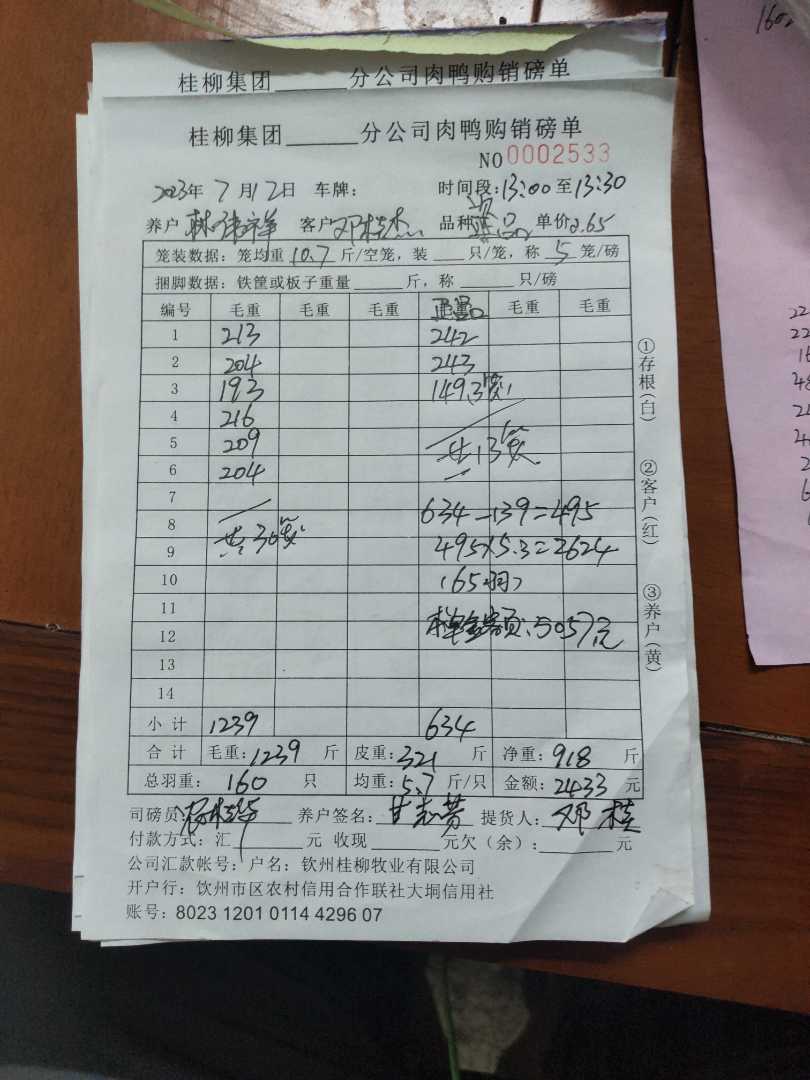 桂柳集团______分公司肉鸭购销磅单
桂柳集团______分公司肉鸭购销磅单
NO 0002533
2023年 7 月 12 日 车牌： 时间段：13:00 至 13:30
养户 林伟祥 客户 邓桂杰 品种 单价 2.65
笼装数据：笼均重 10.7 斤/空笼，装 ___ 只/笼，称 5 笼/磅
捆脚数据：铁筐或板子重量 _____ 斤，称 ______ 只/磅
编号 毛重 毛重 毛重 毛重 毛重
1 213 242
2 204 243
3 193 149(3笼)
4 216
5 209 共13笼
6 204
7
8 共30笼 634-139=495
9 495×5.3=2624
10 (165羽)
11
12 本单金额:5057元
13
14
小计 1239 634
合计 毛重：1239 斤 皮重：321 斤 净重：918 斤
总羽重： 160 只 均重：5.7 斤/只 金额：2433 元
司磅员： 养户签名： 提货人：邓桂
付款方式：汇______元 收现______元欠（余）：______元
公司汇款帐号：户名：钦州桂柳牧业有限公司
开户行：钦州市区农村信用合作联社大垌信用社
账号：8023 1201 0114 4296 07
①存根（白）
②客户（红）
③养户（黄）
160